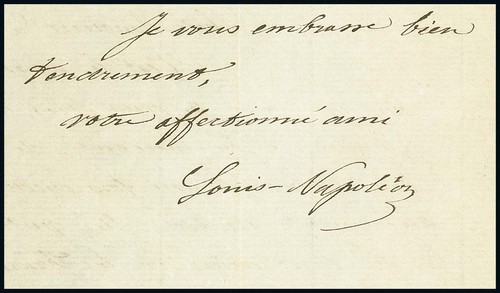 Je vous embrasse bien
tendrement,
votre affectionné ami
Louis-Napoléon